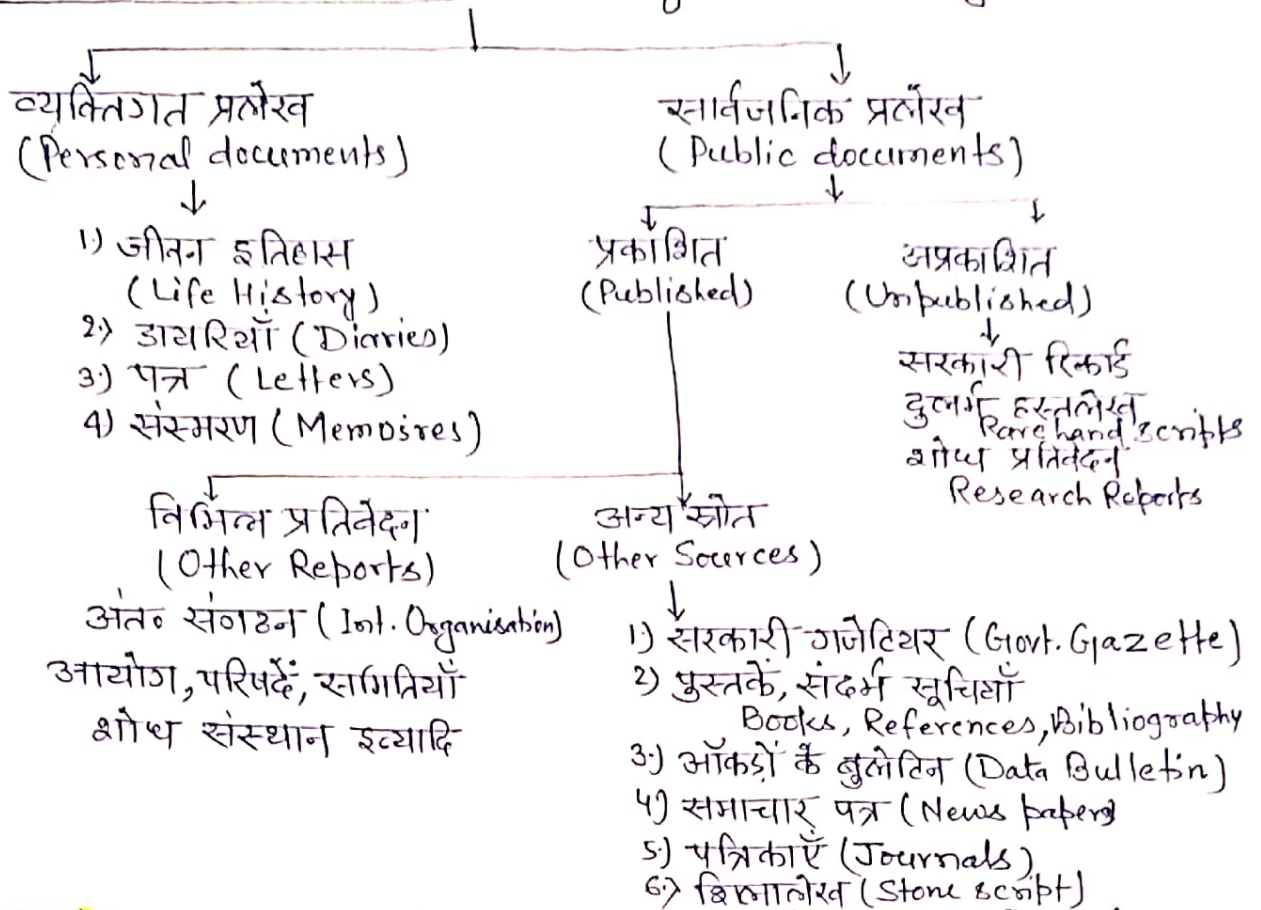 व्यक्तिगत प्रलेख
(Personal documents)
1.) जीवन इतिहास
(Life History)
2.) डायरियाँ (Diaries)
3.) पत्र (Letters)
4) संस्मरण (Memoires)
सार्वजनिक प्रलेख
(Public documents)
प्रकाशित
(Published)
अप्रकाशित
(Unpublished)
सरकारी रिकार्ड
दुलर्भ हस्तलेख
Rare hand scripts
शोध प्रतिवेदन
Research Reports
विभिन्न प्रतिवेदन
(Other Reports)
अंत० संगठन (Int. Organisation)
आयोग, परिषदें, समितियाँ
शोध संस्थान इत्यादि
अन्य स्रोत
(Other Sources)
1.) सरकारी गजेटियर (Govt. Gazette)
2) पुस्तकें, संदर्भ सूचियाँ
Books, References, Bibliography
3.) आँकड़ों के बुलेटिन (Data Bulletin)
4) समाचार पत्र (News papers)
5.) पत्रिकाएँ (Journals)
6.) शिलालेख (Stone script)